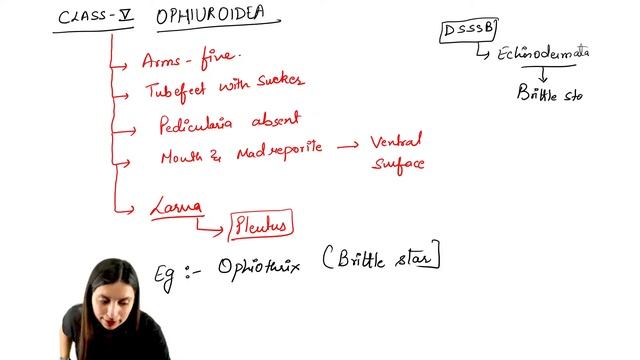 CLASS-V OPHIUROIDEA
Arms - five.
Tubefeet with sucker
Pedicularia absent
Mouth & Madreporite → Ventral surface
Larva
Pleutus
Eg :- Ophiothrix [Brittle star]
DSSSB
Echinodermata
Brittle sta